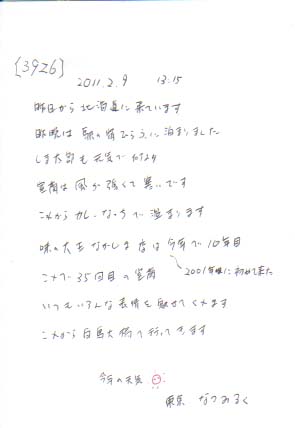 [3926]
2011.2.9 13:15
昨日から北海道に来ています
昨晩は 駅の宿ひらうに泊まりました
しま太郎も元気で何より
室蘭は風が強くて寒いです
これからカレーラーメンで温まります
味の大王 なかしま店は今年で10年目
2001年頃に初めて来た
これで35回目の室蘭
いつもいろんな表情を魅せてくれます
これから白鳥大橋へ行ってきます
今年の天気
東京 なつみるく